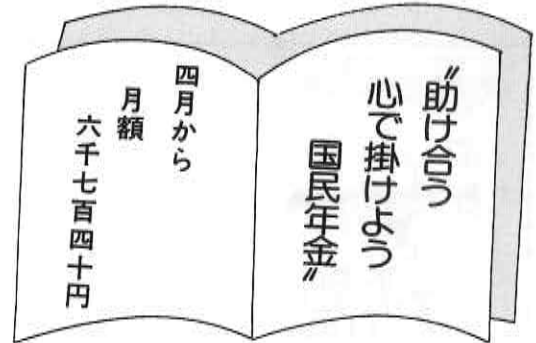 〝助け合う
心で掛けよう
国民年金〟
四月から
月額
六千七百四十円